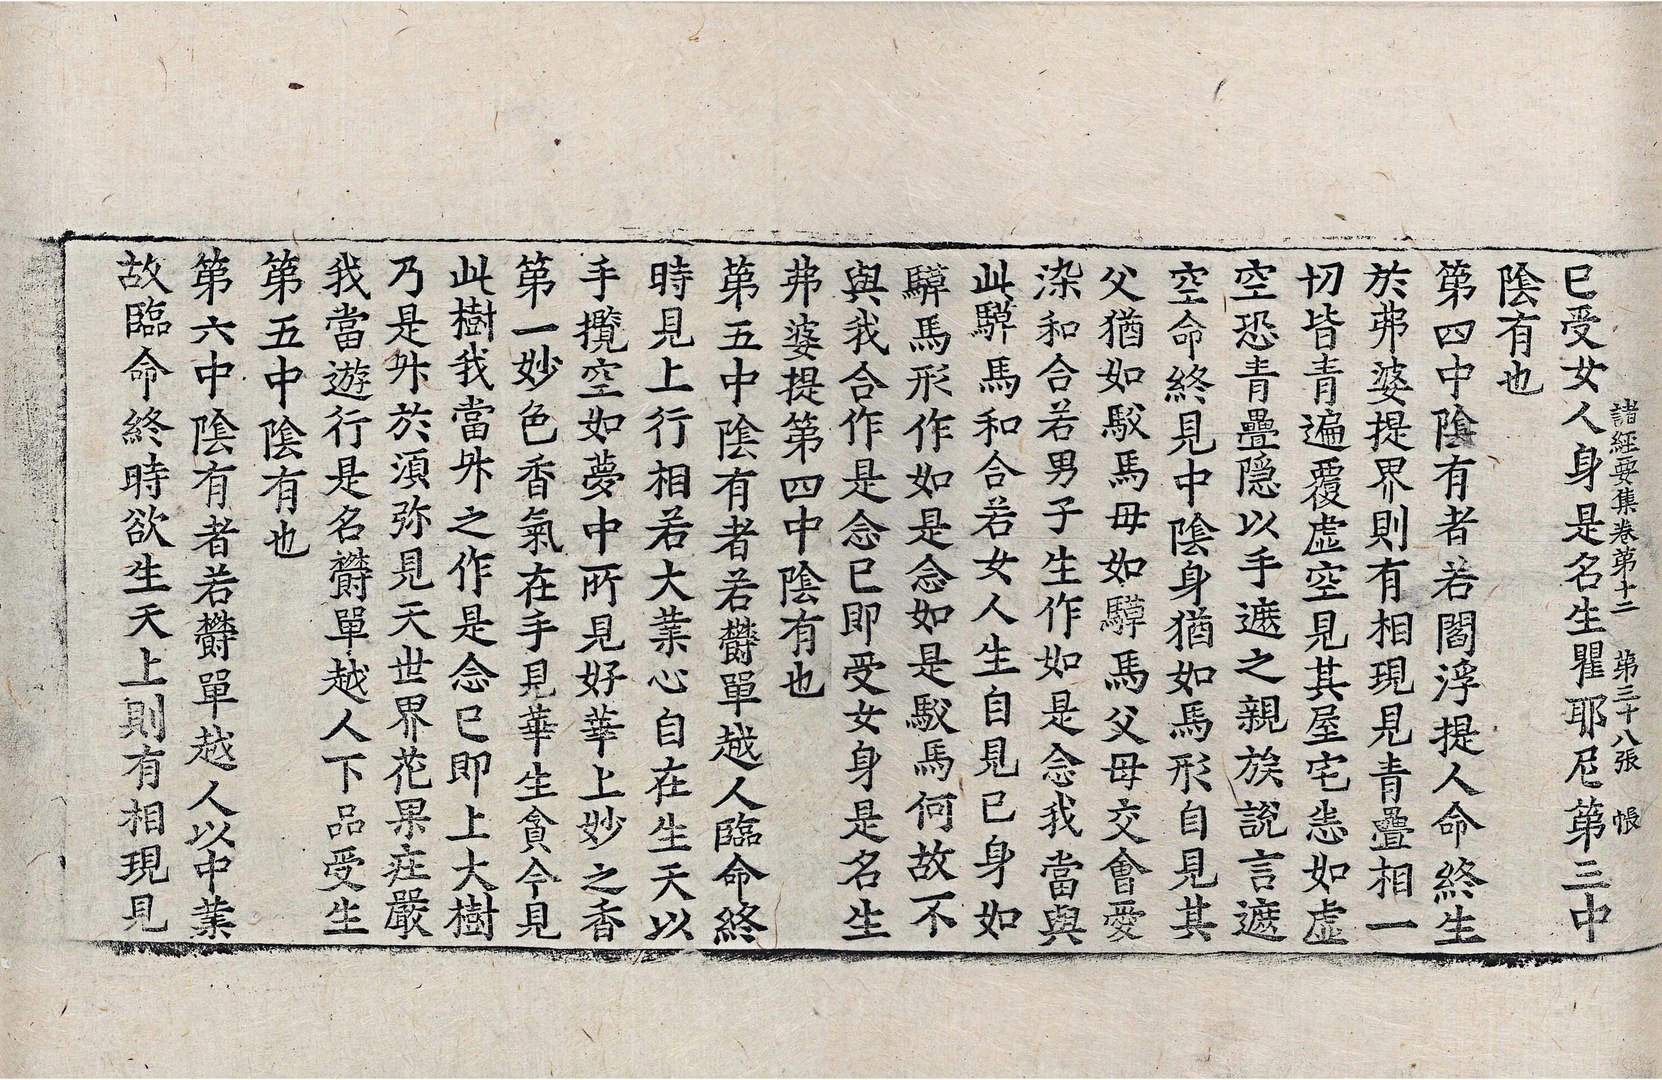 諸經要集卷第十二 第三十八張 帳
已受女人身是名生瞿耶尼第三中
陰有也
第四中陰有者若閻浮提人命終生
於弗婆提界則有相現見青疊相一
切皆青遍覆虛空見其屋宅恚如虛
空恐青疊隱以手遮之親族說言遮
空命終見中陰身猶如馬形自見其
父猶如駁馬母如騲馬父母交會愛
染和合若男子生作如是念我當與
此騲馬和合若女人生自見已身如
騲馬形作如是念如是駁馬何故不
與我合作是念已即受女身是名生
弗婆提第四中陰有也
第五中陰有者若欝單越人臨命終
時見上行相若大業心自在生天以
手攬空如夢中所見好華上妙之香
第一妙色香氣在手見華生貪今見
此樹我當升之作是念已即上大樹
乃是升於須弥見天世界花果莊嚴
我當遊行是名欝單越人下品受生
第五中陰有也
第六中陰有者若欝單越人以中業
故臨命終時欲生天上則有相現見